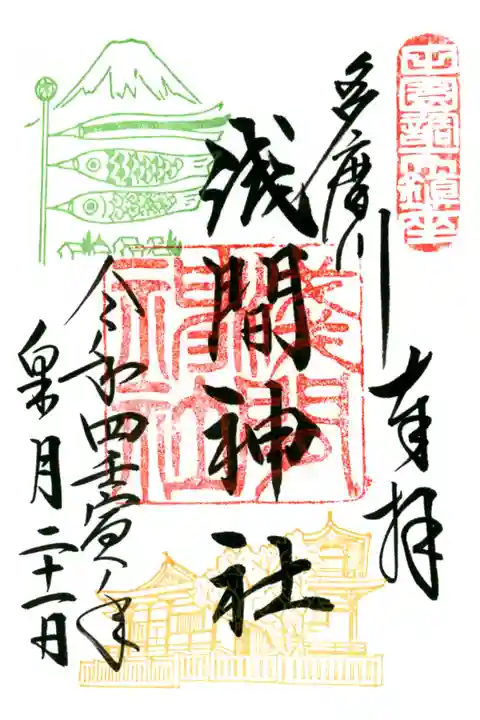 田園調布鎮座
奉拝
多摩川
浅間神社
淺間
神社
令和四壬寅年
皐月二十一日